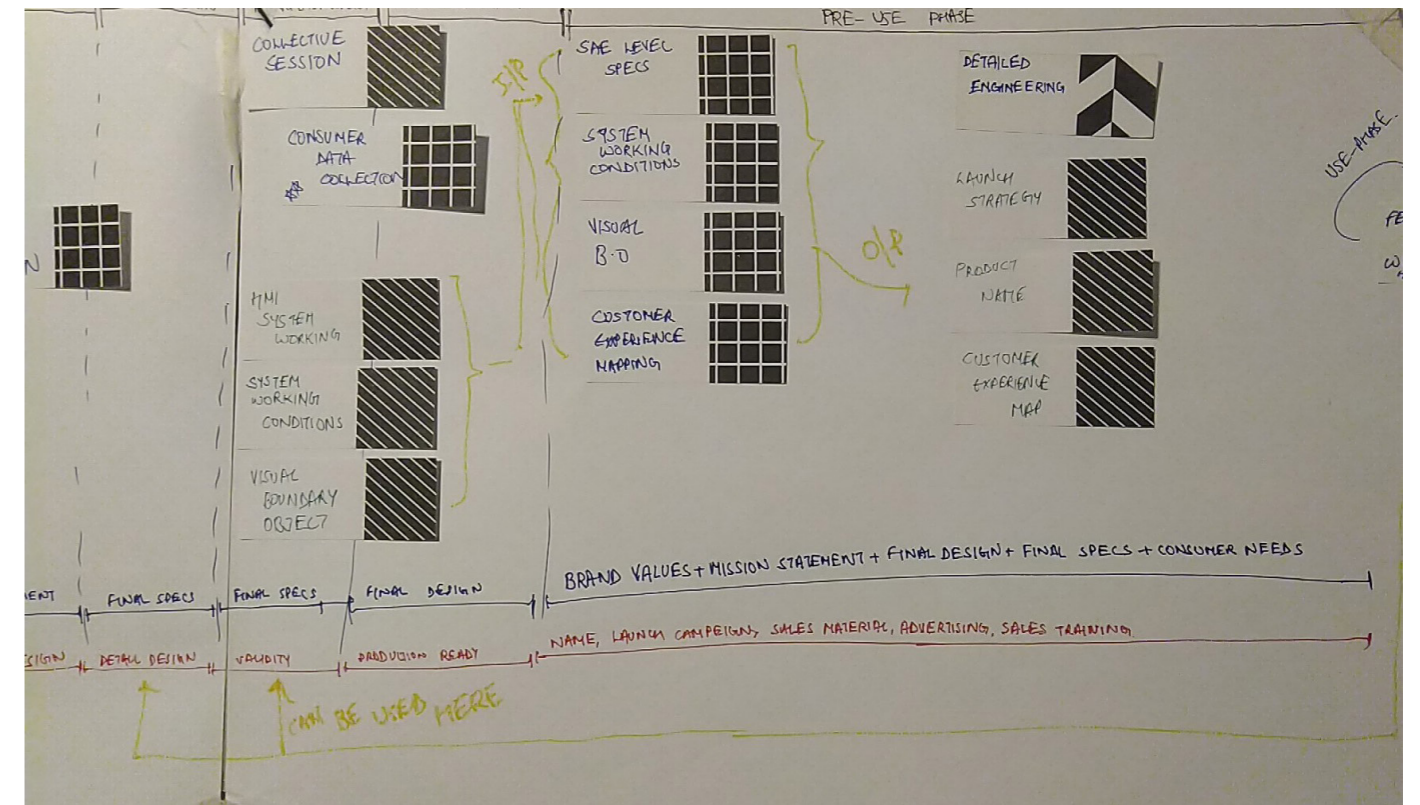 PRE-USE PHASE
COLLECTIVE
SESSION
CONSUMER
DATA
COLLECTION
N
HMI
SYSTEM
WORKING
SYSTEM
WORKING
CONDITIONS
VISUAL
BOUNDARY
OBJECT
I/P
SAE LEVEL
SPECS
SYSTEM
WORKING
CONDITIONS
VISUAL
B.O
CUSTOMER
EXPERIENCE
MAPPING
O/P
DETAILED
ENGINEERING
LAUNCH
STRATEGY
PRODUCT
NAME
CUSTOMER
EXPERIENCE
MAP
USE-PHASE.
FE
ENT
FINAL SPECS
FINAL SPECS
FINAL DESIGN
BRAND VALUES + MISSION STATEMENT + FINAL DESIGN + FINAL SPECS + CONSUMER NEEDS
SIGN
DETAIL DESIGN
VALIDITY
PRODUCTION READY
NAME, LAUNCH CAMPEIGN, SALES MATERIAL, ADVERTISING, SALES TRAINING
CAN BE USED HERE